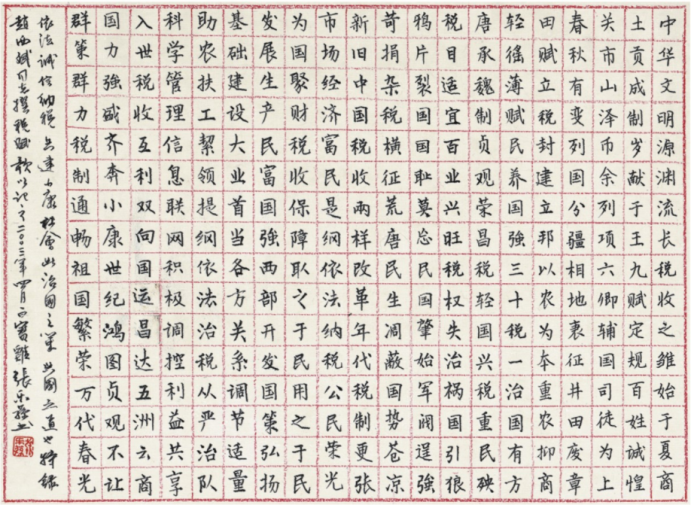 中华文明源渊流长税收之雏始于夏商
土贡成制岁献于王九赋定规百姓诚惶
关市山泽币余列项六卿辅国司徒为上
春秋有变列国分疆相地衰征井田废章
田赋立税封建立邦以农为本重农抑商
轻徭薄赋民养国強三十税一治国有方
唐承魏制贞观荣昌税轻国兴税重民殃
税目适宜百业兴旺税权失治祸国引狼
鸦片裂国国耻莫忘民国肇始军阀逞強
苛捐杂税横征荒唐民生凋蔽国势苍凉
新旧中国税收两样改革年代税制更张
市场经济富民是纲依法纳税公民荣光
为国聚财税收保障取之于民用之于民
发展生产民富国強西部开发国策弘扬
基础建设大业首当各方关系调节适量
助农扶工絜领提纲依法治税从严治队
科学管理信息联网积极调控利益共享
入世税收互利双向国运昌达五洲云商
国力強盛齐奔小康世纪鸿图贞观不让
群策群力税制通畅祖国繁荣万代春光
依法诚信纳税共建小康社会此治国之策 国之道也特录
同志撰税赋 二〇〇三年四月 张 书